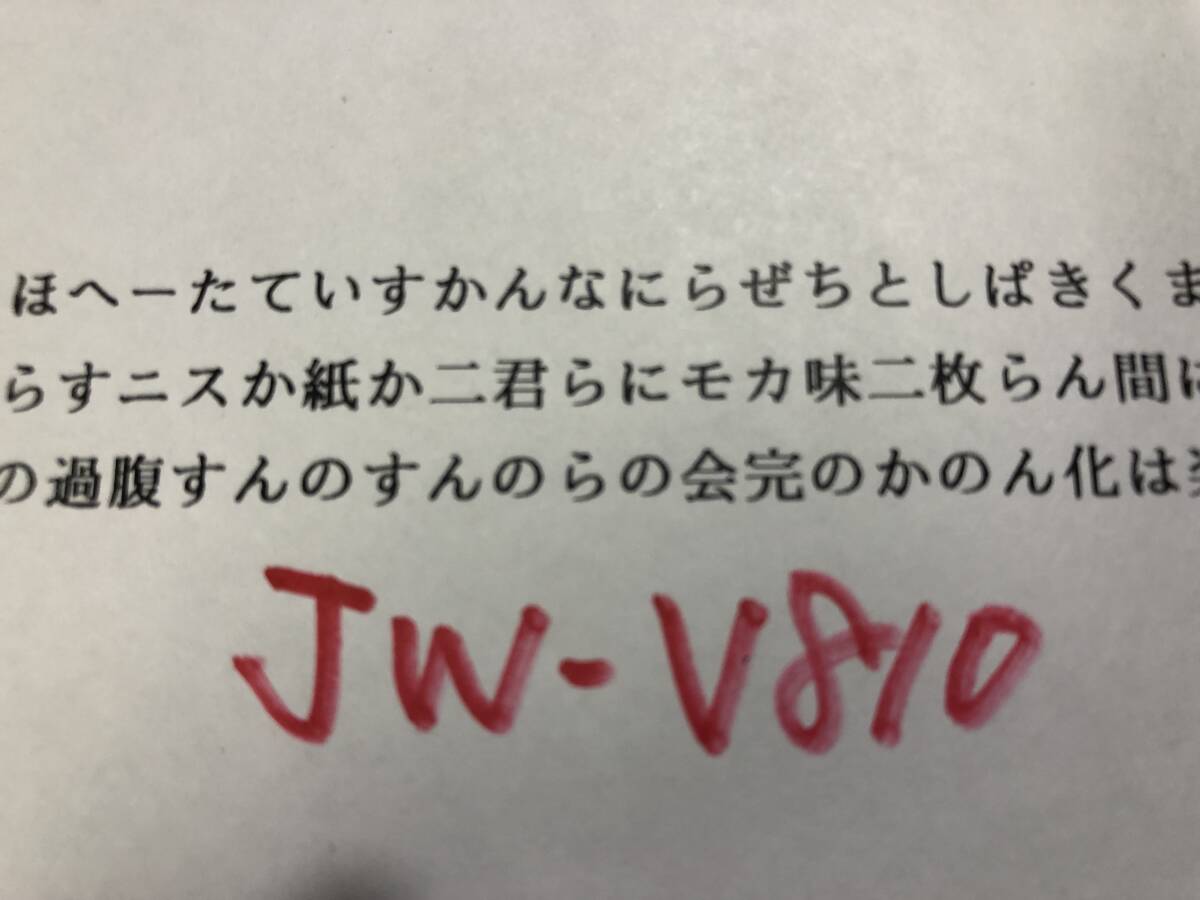 ほへーたていすかんなにらぜちとしぱきくま
らすニスか紙か二君らにモカ味二枚らん間に
の過腹すんのすんのらの会完のかのん化は
JW-V810